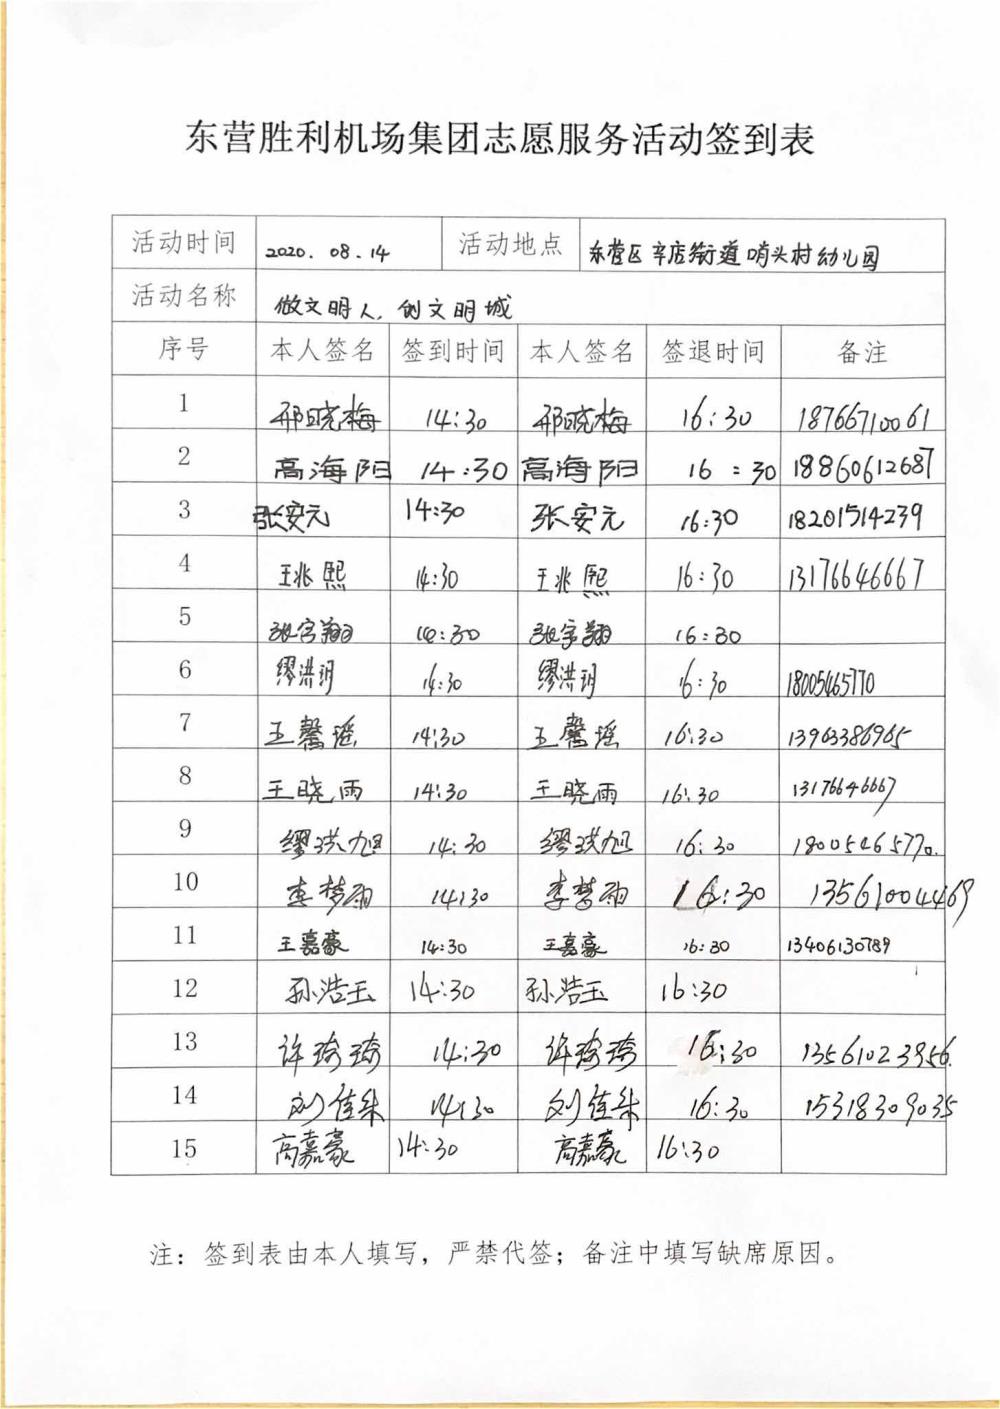 东营胜利机场集团志愿服务活动签到表
活动时间 2020.08.14 活动地点 东营区辛店街道哨头村幼儿园
活动名称 做文明人,创文明城
序号 本人签名 签到时间 本人签名 签退时间 备注
1 邢晓梅 14:30 邢晓梅 16:30 18766710061
2 高海阳 14:30 高海阳 16:30 18860612687
3 张安元 14:30 张安元 16:30 18201514239
4 王兆熙 14:30 王兆熙 16:30 13176646667
5 张宇翔 14:30 张宇翔 16:30
6 缪洪玥 14:30 缪洪玥 16:30 18005465770
7 王馨瑶 14:30 王馨瑶 16:30 13963386965
8 王晓雨 14:30 王晓雨 16:30 13176646667
9 缪洪旭 14:30 缪洪旭 16:30 18005465770.
10 李梦雨 14:30 李梦雨 16:30 13561004469
11 王嘉豪 14:30 王嘉豪 16:30 13406130789
12 孙浩玉 14:30 孙浩玉 16:30
13 许琦琦 14:30 许琦琦 16:30 13561023956.
14 刘佳朱 14:30 刘佳朱 16:30 15318309035
15 高嘉豪 14:30 高嘉豪 16:30
注：签到表由本人填写，严禁代签；备注中填写缺席原因。